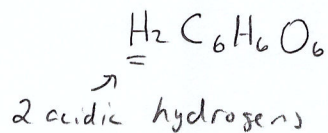 H₂C₆H₆O₆
2 acidic hydrogens